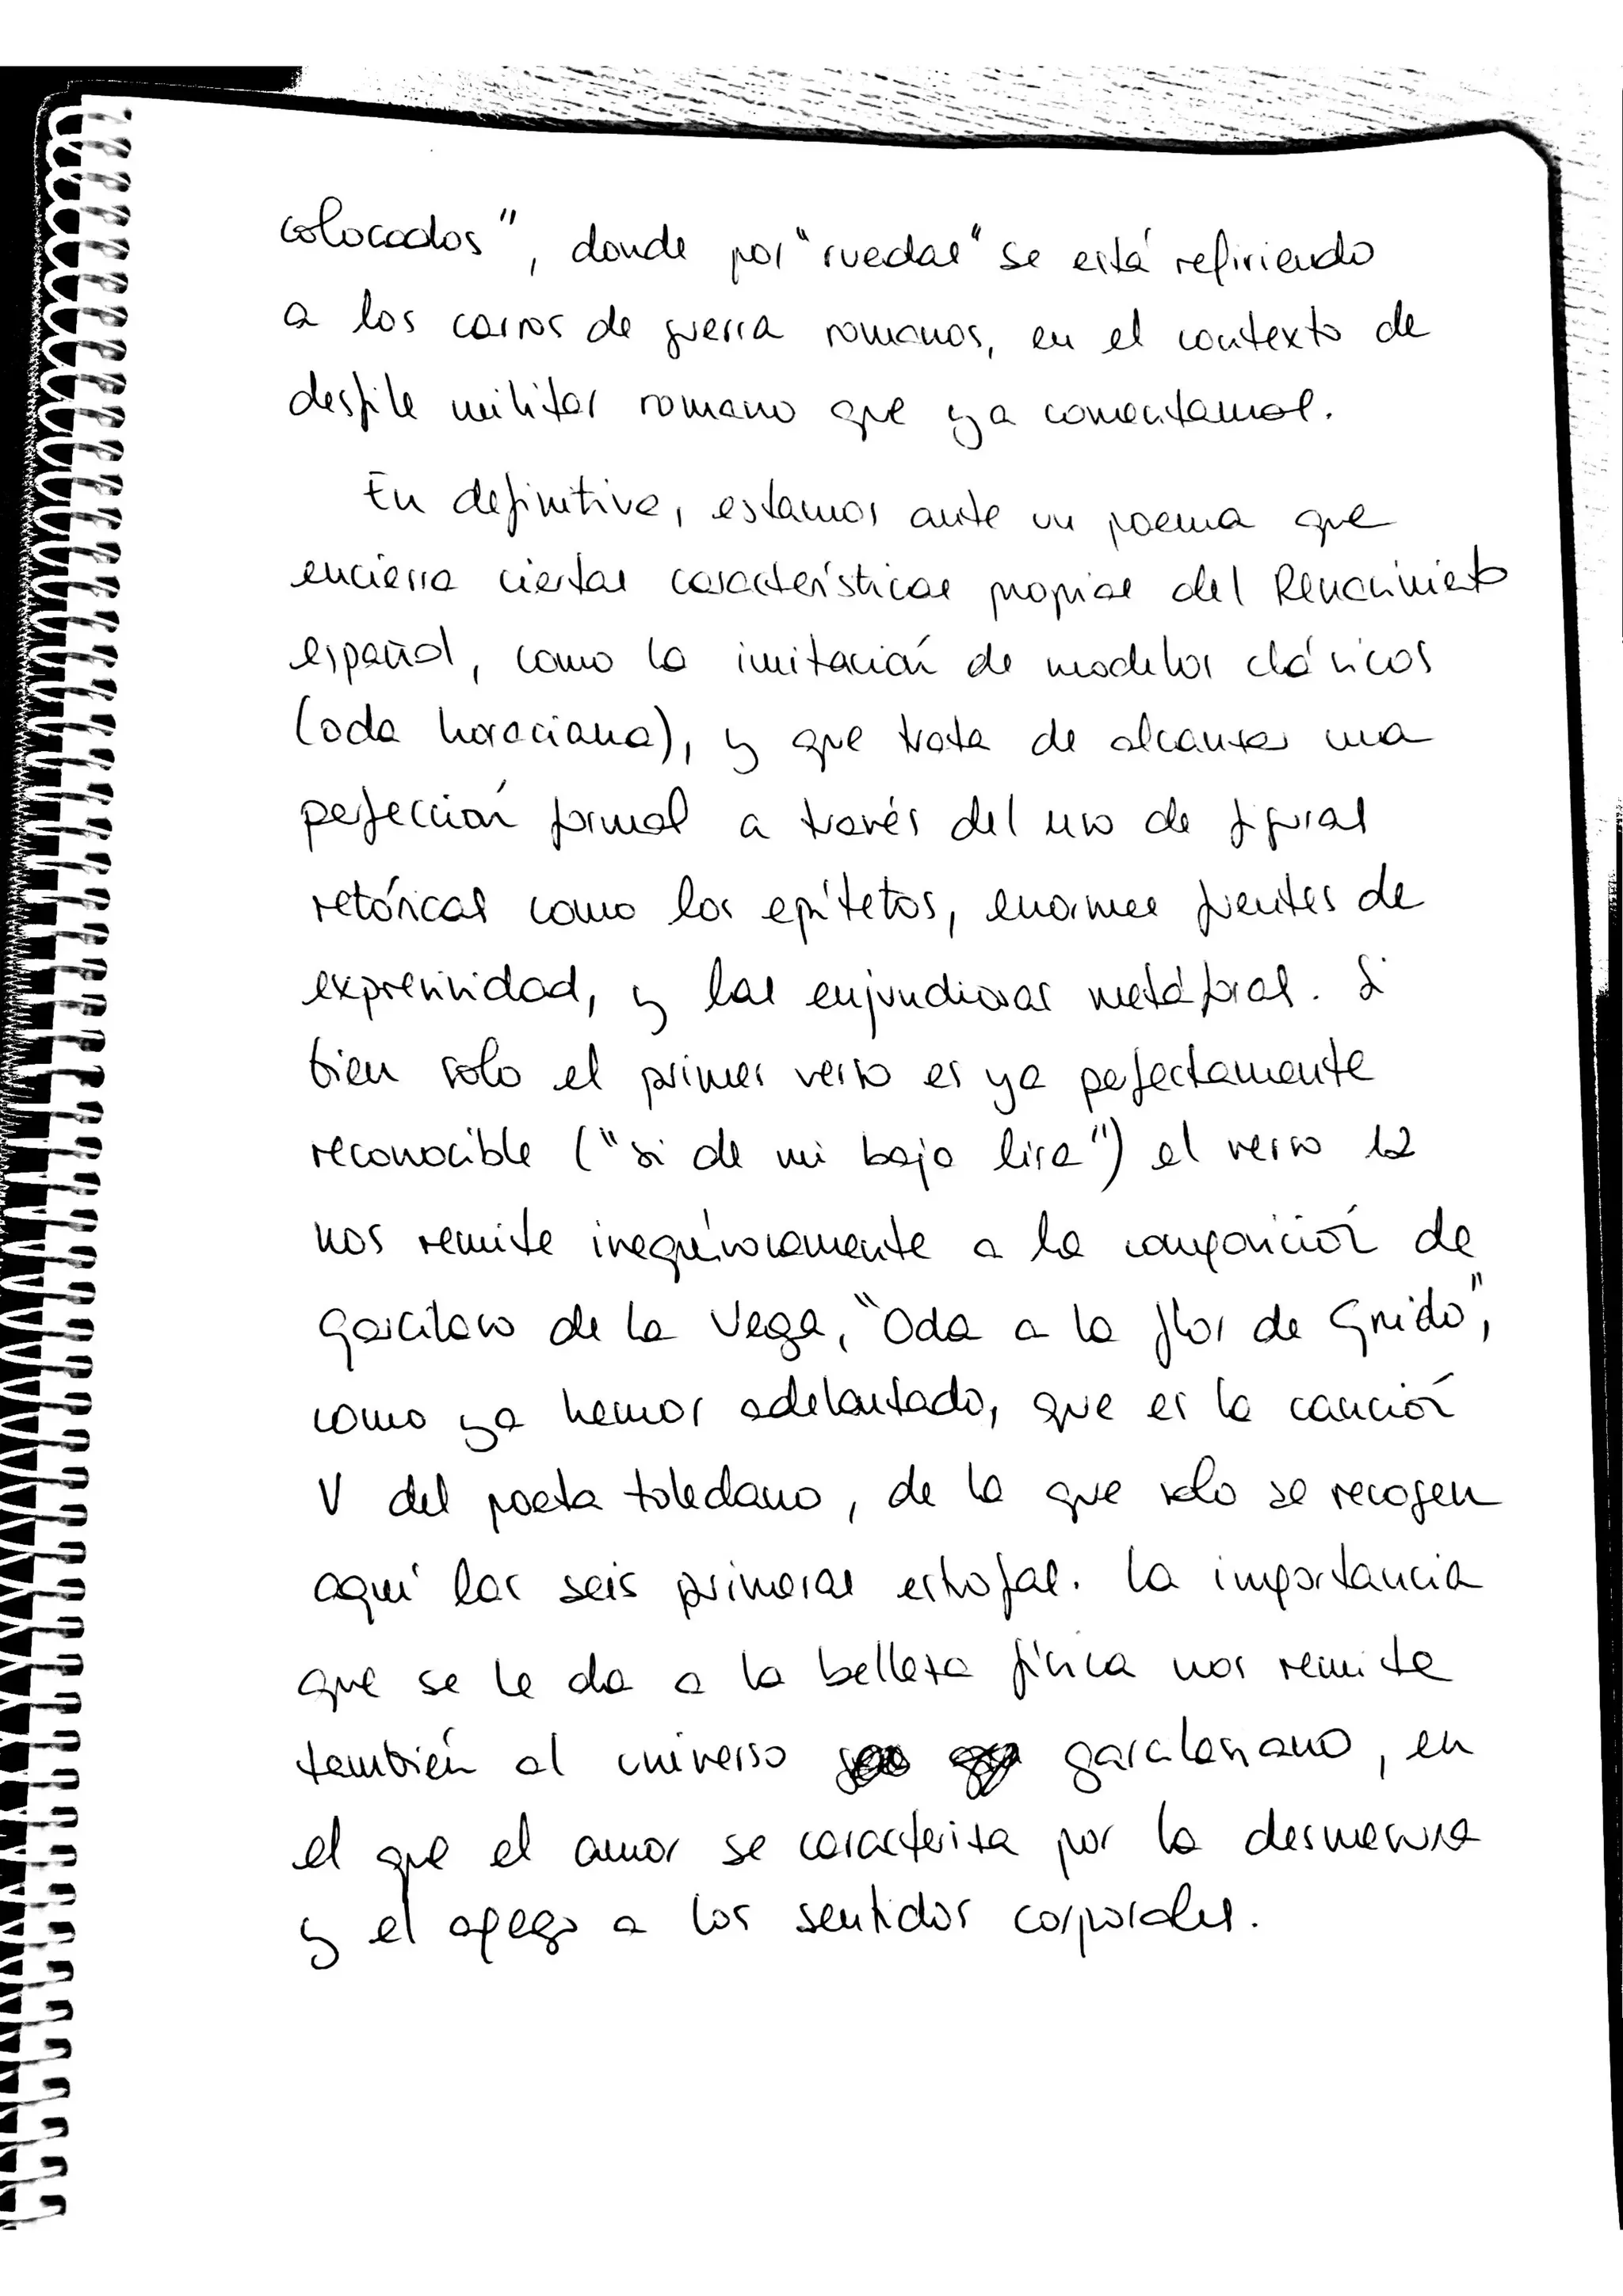 colocados", donde por "ruedas" se está refiriendo
a los carros de guerra romanos, en el contexto de
desfile militar romano que ya comentamos.
En definitiva, estamos ante un poema que
encierra ciertas características propias del Renacimiento
español, como la imitación de modelos clásicos
(oda horaciana), y que trata de alcanzar una
perfección formal a través del uso de figuras
retóricas como los epítetos, enormes fuentes de
expresividad, y las enjundiosas metáforas. Si
bien solo el primer verso es ya perfectamente
reconocible ("si de mi baja lira") el verso 12
nos remite inequívocamente a la composición de
Garcilaso de la Vega, "Oda a la flor de Gnido",
como ya hemos adelantado, que es la canción
V del poeta toledano, de la que solo se recogen
aquí las seis primeras estrofas. La importancia
que se le da a la belleza física nos remite
también al universo garcilasiano, en
el que el amor se caracteriza por la desmesura
y el apego a los sentidos corporales.